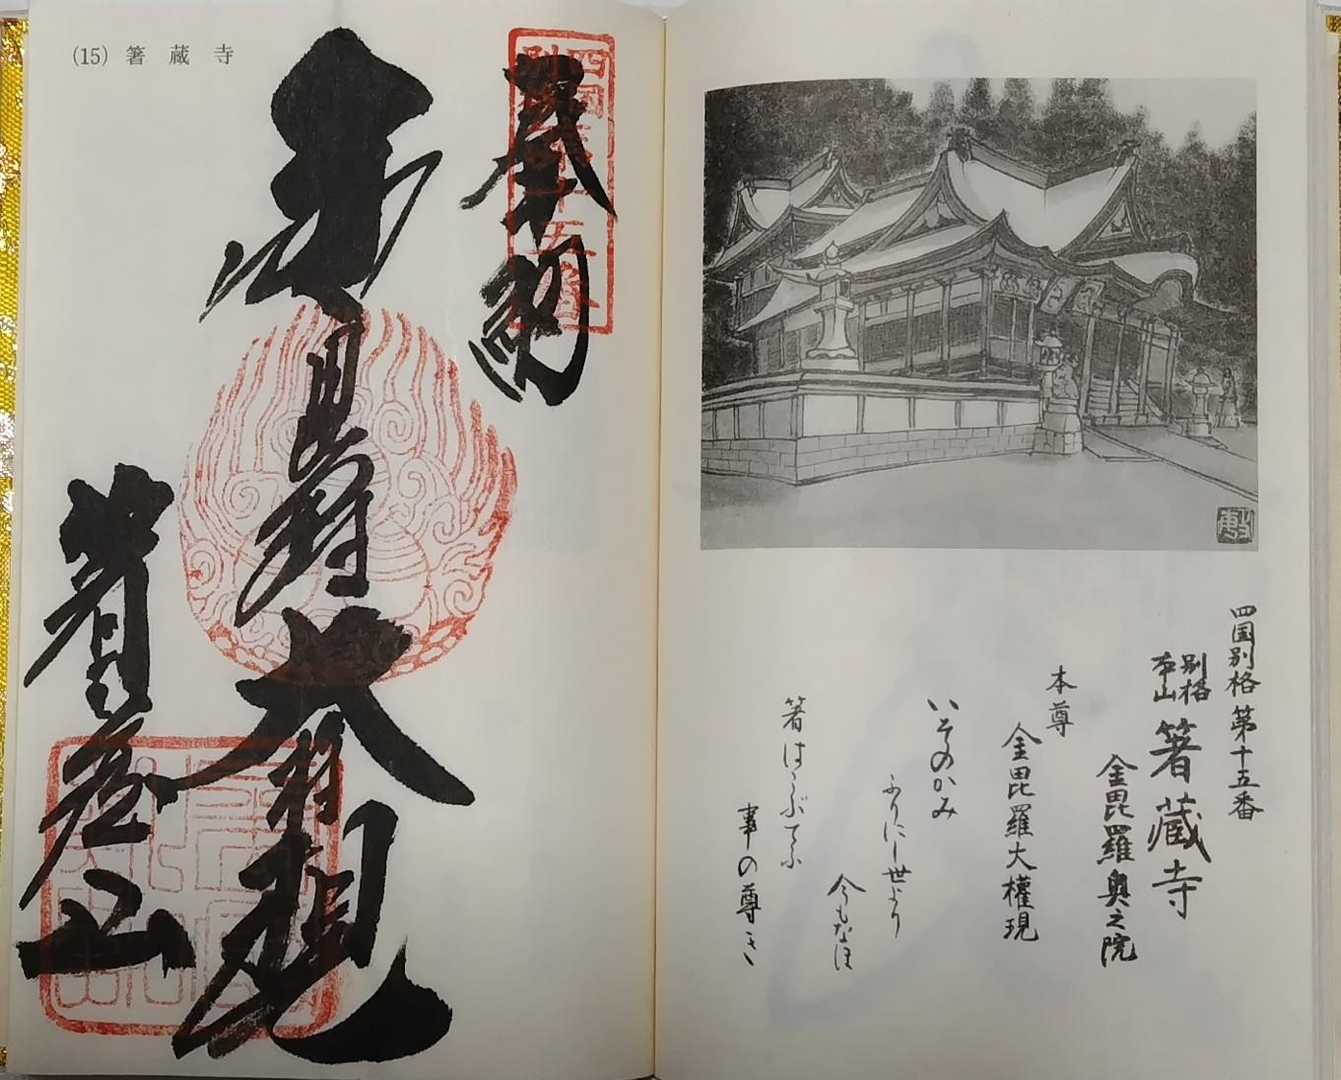 (15) 箸蔵寺
奉納
金毘羅大権現
箸蔵山
四国別格第十五番
別格
本山
箸蔵寺
金毘羅奥之院
本尊
金毘羅大權現
いそのかみ
ふりにし世より
今もなほ
箸はこぶてふ
事の尊き